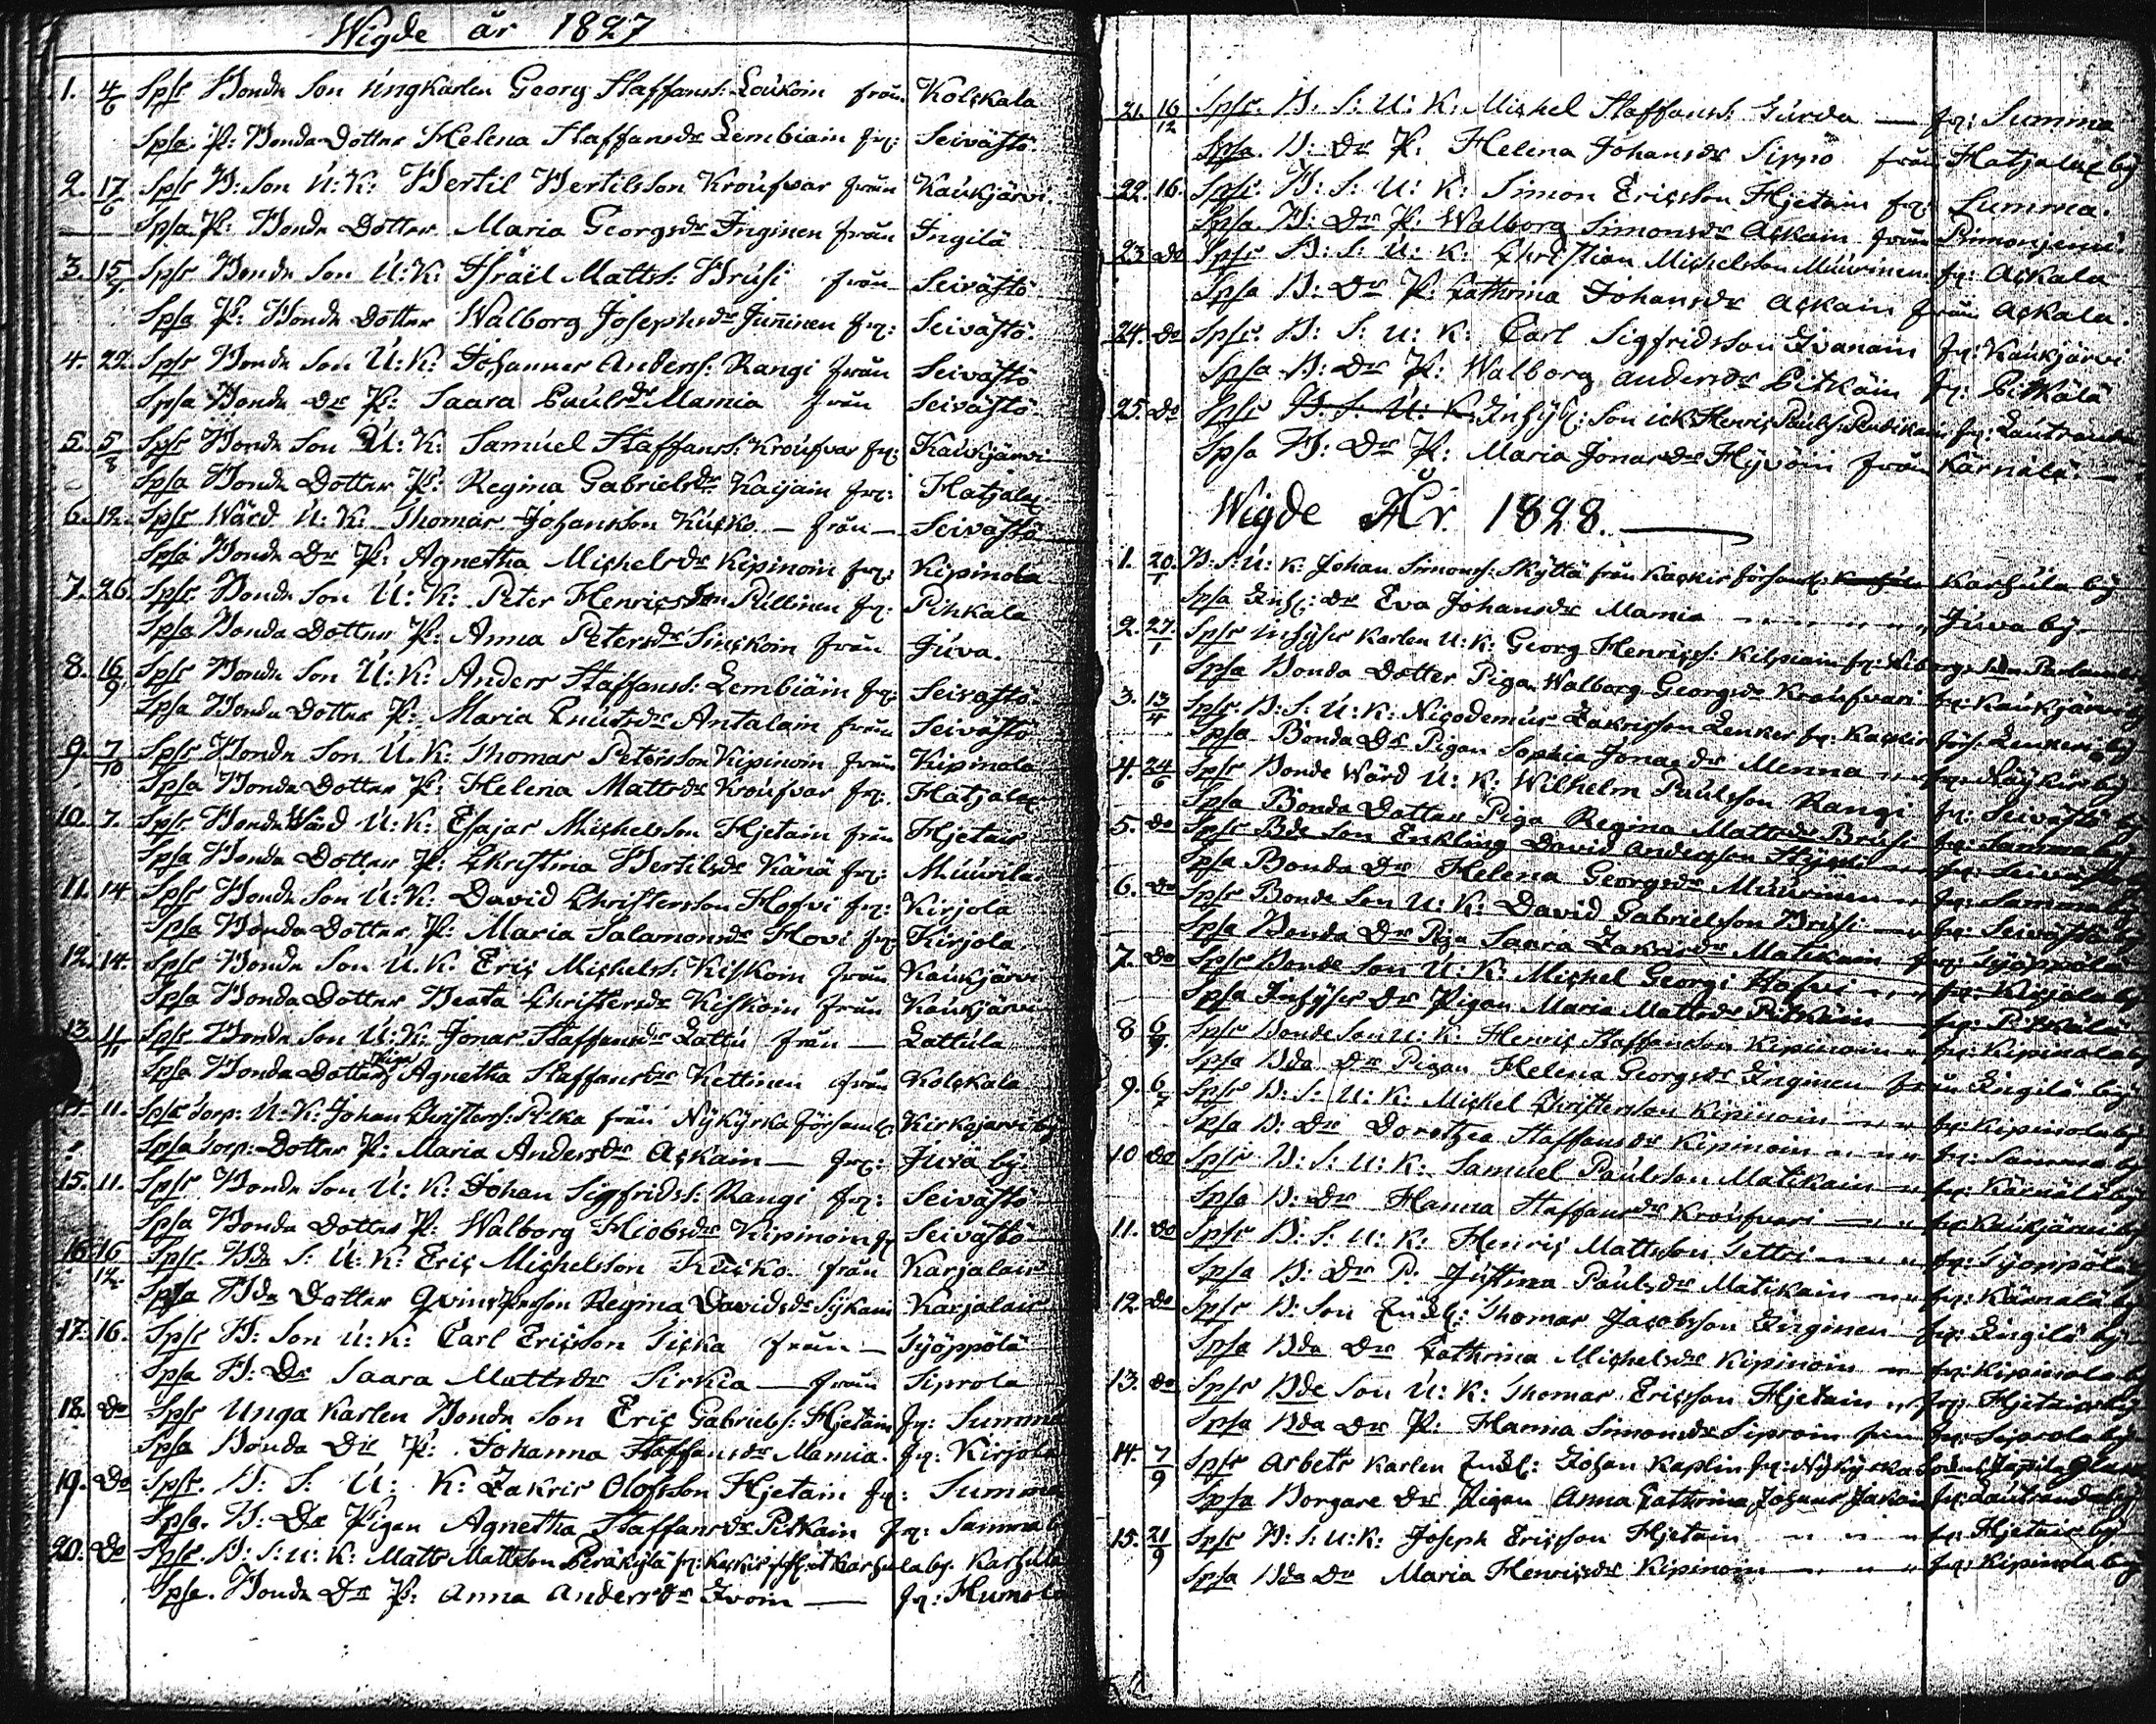 Wigde år 1827
1. 4/6 Spsr Bonde Son Ungkarlen Georg Staffanss: Loukoin från Kolckala
Spsa P: Bonda Dotter Helena Staffansdr Lembiain frn: Seivästö.
2. 17/6 Spsr B: Son U: K: Bertil Bertilsson Kroufvar från Kaukjärvi.
Spsa P: Bonde Dotter Maria Georgsdr Inginen från Ingilä
3. 15/7 Spsr Bonde Son U: K: Israël Matts: Brusi från Seivästö
Spsa P: Bonde Dotter Walborg Josephsdr Junninen frn: Seivästö.
4. 22. Spsr Bonde Son U: K: Johannes Anderss: Rangi från Seivästö
Spsa Bonde Dr P: Saara Paulsdr Mamia från Seivästö.
5. 5/8 Spsr Bonde Son U: K: Samuel Staffanss: Kroufvar frn: Kaukjärvi
Spsa Bonde Dotter P: Regina Gabrielsdr Kaijain frn: Hatjalax
6. 12. Spsr Wärd U: K: Thomas Johansson Kucko — från — Seivästö
Spsa Bonde Dr P: Agnetha Michelsdr Kipinoin frn: Kipinola
7. 26. Spsr Bonde Son U: K: Peter Henricsson Pillinen frn: Pihkala
Spsa Bonda Dotter P: Anna Petersdr Sinckoin från Juva.
8. 16/9 Spsr Bonde Son U: K: Anders Staffanss: Lembiäin frn: Seivästö.
Spsa Bonde Dotter P: Maria Knutsdr Antalain från Seivästö
9. 7/10 Spsr Bonde Son U. K: Thomas Petersson Kipinoin från Kipinola
Spsa Bonda Dotter P: Helena Mattsdr Kroufvar frn: Hatjalax
10. 7. Spsr Bonde Wärd U: K: Esajas Michelsson Hjetain från Hjetais
Spsa Bonda Dotter P: Christina Bertilsdr Käriä frn: Muurila
11. 14 Spsr Bonde Son U: K: David Christersson Hofvi frn: Kirjola
Spsa Bonda Dotter P: Maria Salamonsdr Hovi frn: Kirjola
12. 14. Spsr Bonde Son U. K: Eric Michelss: Kiskoin från Kaukjärvi
Spsa Bonda Dotter Beata Christersdr Kiskoin från Kaukjärvi
13. 4/11 Spsr Bonde Son U: K: Jonas Staffansdr Lattu från — Lattula
Spsa Bonda Dotter Piga Agnetha Staffansdr Kettinen från Kolckala
14. 11. Spsr Torp: U: K: Johan Christerss: Pilka från Nykyrka Församl: Kirkojärvi by
Spsa Torp: Dotter P: Maria Andersdr Ackain — frn: Juva by.
15. 11. Spsr Bonde Son U: K: Johan Sigfridss: Rangi frn: Seivästö
Spsa Bonda Dotter P: Walborg Hiobsdr Kipinoin frn Seivästö
16. 16/12 Spsr. Bde S: U: K: Eric Michelsson Kucko från Karjalais
Spsa Bda Dotter Qvinsperson Regina Davidsdr Sykiain Karjalais
17. 16. Spsr B: Son U: K: Carl Ericsson Sicka från — Syöppölä
Spsa B: Dr Saara Mattsdr Sirkia — från Siprola
18. Do Spsr Unga Karlen Bonde Son Eric Gabrielss: Hjetain frn: Summa
Spsa Bonda Dr P: Johanna Staffansdr Mamia. frn: Kirjola
19. Do Spsr. B: S: U: K: Zakris Olofsson Hjetain frn: Summa
Spsa. B: Dr Pigan Agnetha Staffansdr Pitkäin frn: Samma b
20. Do Spsr. B: S: U: K: Matts Mattsson Peräkylä frn: Kackis Karhula by. Karhula
Spsa. Bonde Dr P: Anna Andersdr Ivoin — frn: Humola
21. 16/12 Spsr. B: S: U: K: Michel Staffanss: Surda — frn: Summa
Spsa. B: Dr P: Helena Johansdr Sippo från Hatjalax by
22. 16. Spsr. B: S: U: K: Simon Ericsson Hjetain frn: Summa.
Spsa. B: Dr P: Walborg Simonsdr Ackain från
23 Do Spsr B: S: U: K: Christian Michelsson Muurinen frn: Ackala
Spsa B: Dr P: Cathrina Johansdr Ackain från Ackala.
24. Do Spsr: B: S: U: K: Carl Sigfridsson Ivanain frn: Kaukjärvi
Spsa B: Dr P: Walborg Andersdr Pitkäin frn: Pitkälä
25. Do Spsr B: S: U: K: Inhys: Son U K Henric Pauls: Pentikäin frn: Lautranda
Spsa B: Dr P: Maria Jonasdr Hyvöin från Kärnälä. —
Wigde År 1828. —
1. 20/1 B: S: U: K: Johan Simonss: Skyttä från Kackis Församl: Karhula Karhula by
Spsa Inh: Dr Eva Johansdr Mamia Juva by.
2. 27/1 Spsr Inhyses Karlen U: K: Georg Henricss: Kilpiain frn: Wiborgs
Spsa Bonda Dotter Pigan Walborg Georgsdr Kroufvari frn: Kaukjärvi
3. 13/4 Spsr. B: S: U: K: Nicodemus Zakrisson Lenker frn: Kackis Förs. Lenkeri by
Spsa Bonda Dr Pigan Sophia Jonaedr Menna
4. 24/6 Spsr Bonde Wärd U: K: Wilhelm Paulsson Rangi frn: Seivästö by
Spsa Bonda Dotter Piga Regina Mattsdr Brusi frn: Samma by
5. Do Spsr Bde Son Enkling David Andersson frn: Seivästö
Spsa Bonda Dr Helena Georgsdr Muurinen frn: Samma by
6. Do Spsr Bonde Son U: K: David Gabrielsson Brusi — frn: Seivästö by
Spsa Bonda Dr Piga Saara Zakrisdr Matikain frn: Syöppölä
7. Do Spsr Bonde Son U: K: Michel Georgi Hofvi frn: Kirjola by
Spsa Inhyses Dr Pigan Maria Mattsdr Pitkäin frn: Pitkälä
8 6/7 Spsr Bonde Son U: K: Henric Staffansson Kipinoin frn: Kipinola by
Spsa Bda Dr Pigan Helena Georgsdr Inginen från Ingilä by
9. 6/7 Spsr B: S: U: K: Michel Christersson Kipinoin frn: Kipinola by
Spsa B: Dr Dorothea Staffansdr Kipinoin frn: Samma by
10 Do Spsr B: S: U: K: Samuel Paulsson Matikain frn: Kärnälä by
Spsa B: Dr Hanna Staffansdr Kroufvari frn: Kaukjärvi by
11. Do Spsr B: S: U: K: Henric Mattsson frn: Syöppölä
Spsa B: Dr P. Justina Paulsdr Matikain frn: Kärnälä by
12. Do Spsr B: Son Enkl: Thomas Jacobsson Inginen frn: Ingilä by
Spsa Bda Dr Cathrina Michelsdr Kipinoin frn: Kipinola by
13. Do Spsr Bde Son U: K: Thomas Ericsson Hjetain frn: Hjetais by
Spsa Bda Dr P: Hanna Simonsdr Siproin från Siprola by
14. 7/9 Spsr Arbets Karlen Enkl: Johan Kaplin frn: Nykyrka
Spsa Borgare Dr Pigan Anna Cathrina frn: Lautranda by
15. 21/9 Spsr B: S: U: K: Joseph Ericsson Hjetain frn: Hjetais by
Spsa Bda Dr Maria Henricsdr Kipinoin frn: Kipinola by